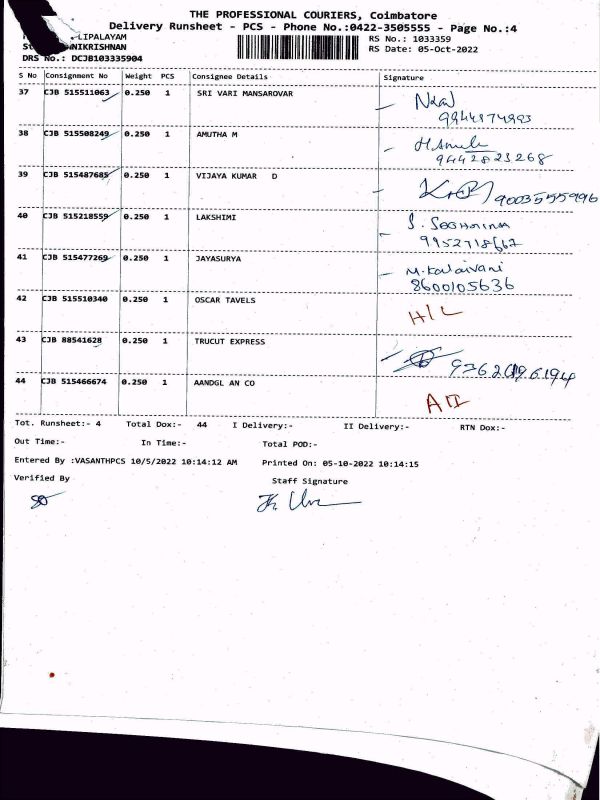 THE PROFESSIONAL COURIERS, Coimbatore
Delivery Runsheet - PCS - Phone No.:0422-3505555 - Page No.:4
LIPALAYAM RS No.: 1033359
NNIKRISHNAN RS Date: 05-Oct-2022
DRS No.: DCJB103335904
S No Consignment No Weight PCS Consignee Details Signature
37 CJB 515511063 0.250 1 SRI VARI MANSAROVAR
9944874993
38 CJB 515508249 0.250 1 AMUTHA M
9442823268
39 CJB 515487685 0.250 1 VIJAYA KUMAR D
9003555996
40 CJB 515218559 0.250 1 LAKSHIMI
9952718667
41 CJB 515477269 0.250 1 JAYASURYA M. Kalaivani
8600105636
42 CJB 515510340 0.250 1 OSCAR TAVELS H/L
43 CJB 88541628 0.250 1 TRUCUT EXPRESS
44 CJB 515466674 0.250 1 AANDGL AN CO
Tot. Runsheet:- 4 Total Dox:- 44 I Delivery:- II Delivery:- RTN Dox:-
Out Time:- In Time:- Total POD:-
Entered By :VASANTHPCS 10/5/2022 10:14:12 AM Printed On: 05-10-2022 10:14:15
Verified By Staff Signature